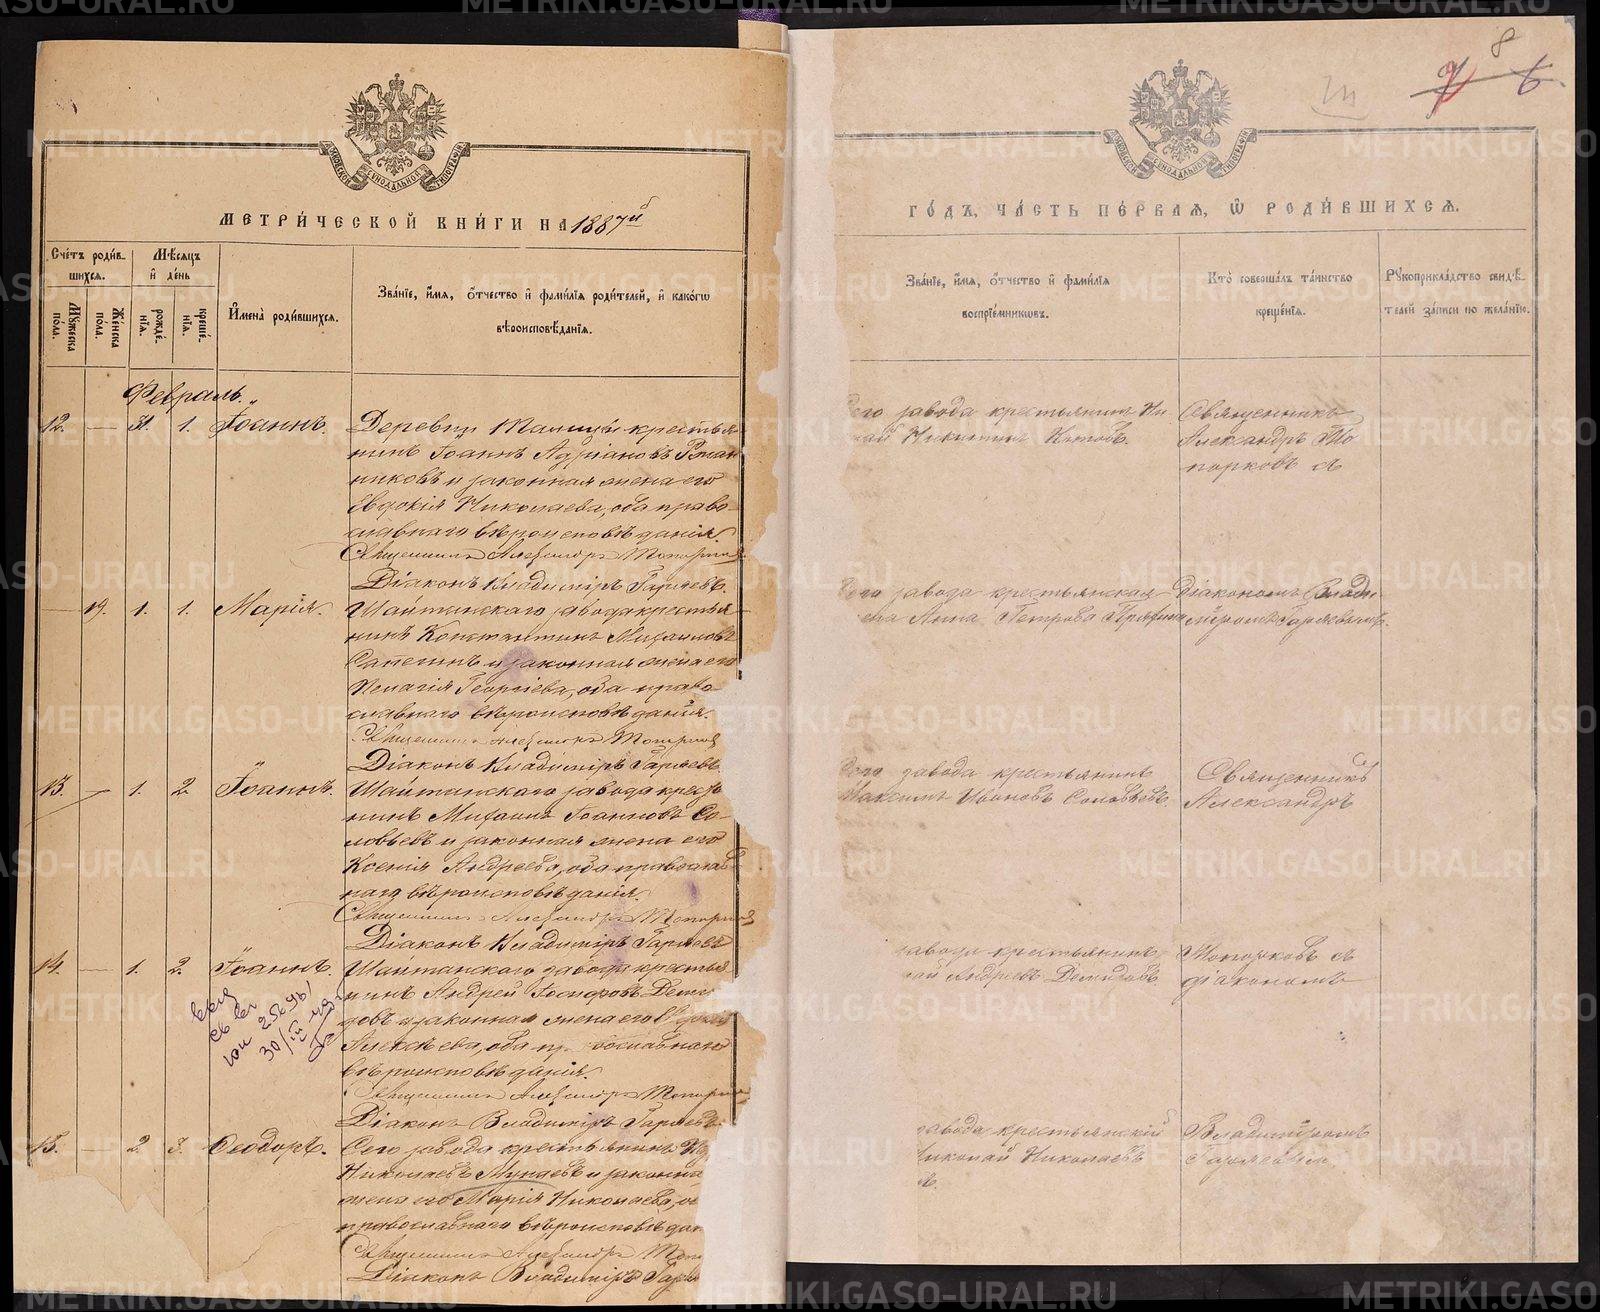 МЕТРИ́ЧЕСКОЙ КНИ́ГИ НА 1887й
Сче́тъ роди́в-
шихся.
Мѣ́сяцъ
и҆ де́нь
Мꙋ́жеска
по́ла.
Же́нска
по́ла.
рожде́-
нія.
креще́-
нія.
И҆мена̀ роди́вшихся.
Зва́ніе, и҆́мя, ѻ҆́тчество и҆ фами́лія роди́телей, и҆ како́гѡ
вѣроисповѣ́данія.
Февраль.
12. — 31. 1. Іоаннъ.
Деревни Талицы крестья
нинъ Іоаннъ Адріановъ
никовъ и законная жена его
Евдокія Николаева, оба право-
славнаго вѣроисповѣданія.
Священникъ Александръ Топорковъ
Діаконъ Владиміръ Гаряевъ.
— 19. 1. 1. Марія.
Шайтанскаго завода крестья
нинъ Константинъ Михаиловъ
Сапегинъ и законная жена его
Пелагія Георгіева, оба право-
славнаго вѣроисповѣданія.
Священникъ Александръ Топорков
Діаконъ Владиміръ Гаряевъ.
13. — 1. 2. Іоаннъ.
Шайтанскаго завода кресть
нинъ Михаилъ Іоанновъ Со-
ловьевъ и законная жена его
Ксенія Андреева, оба православ-
наго вѣроисповѣданія.
Священникъ Александръ Топорков
Діаконъ Владиміръ Гаряевъ
14. — 1. 2. Іоаннъ.
Шайтанскаго завода крестья
нинъ Андрей Іосифовъ Деми
довъ и законная жена его
Алексѣева, оба православнаго
вѣроисповѣданія.
Священникъ Александръ Топорк
Діаконъ Владиміръ Гаряевъ.
256961
30/III
15. — 2. 3. Ѳеодоръ.
Сего завода крестьянинъ
Николаевъ и законна
жена его Марія Николаева, о
православнаго вѣроисповѣдан
Священникъ Александръ Топо
Діаконъ Владиміръ Гаря
8
6.
ГО́ДЪ, ЧА́СТЬ ПЕ́РВАЯ, Ѡ҆ РОДИ́ВШИХСЯ.
Зва́ніе, и҆́мя, ѻ҆́тчество и҆ фами́лія
воспріе́мникѡвъ.
Кто̀ соверша́лъ та́инство
креще́нія.
Рꙋкоприкла́дство свидѣ́-
телей за́писи по жела́нію.
Сего завода крестьянинъ Ни
лай Никитинъ Титовъ.
Священникъ
Александръ То
порковъ съ
Сего завода крестьянская
Анна Петрова
Діакономъ Влади
міромъ Гаряевымъ.
Сего завода крестьянинъ
Максимъ Ивановъ Соловьевъ.
Священникъ
Александръ
завода крестьянинъ
Андреевъ Демидовъ
Топорковъ съ
діакономъ
завода крестьянскій
иколай Николаевъ
Владиміромъ
Гаряевым.
METRIKI.GASO-URAL.RU